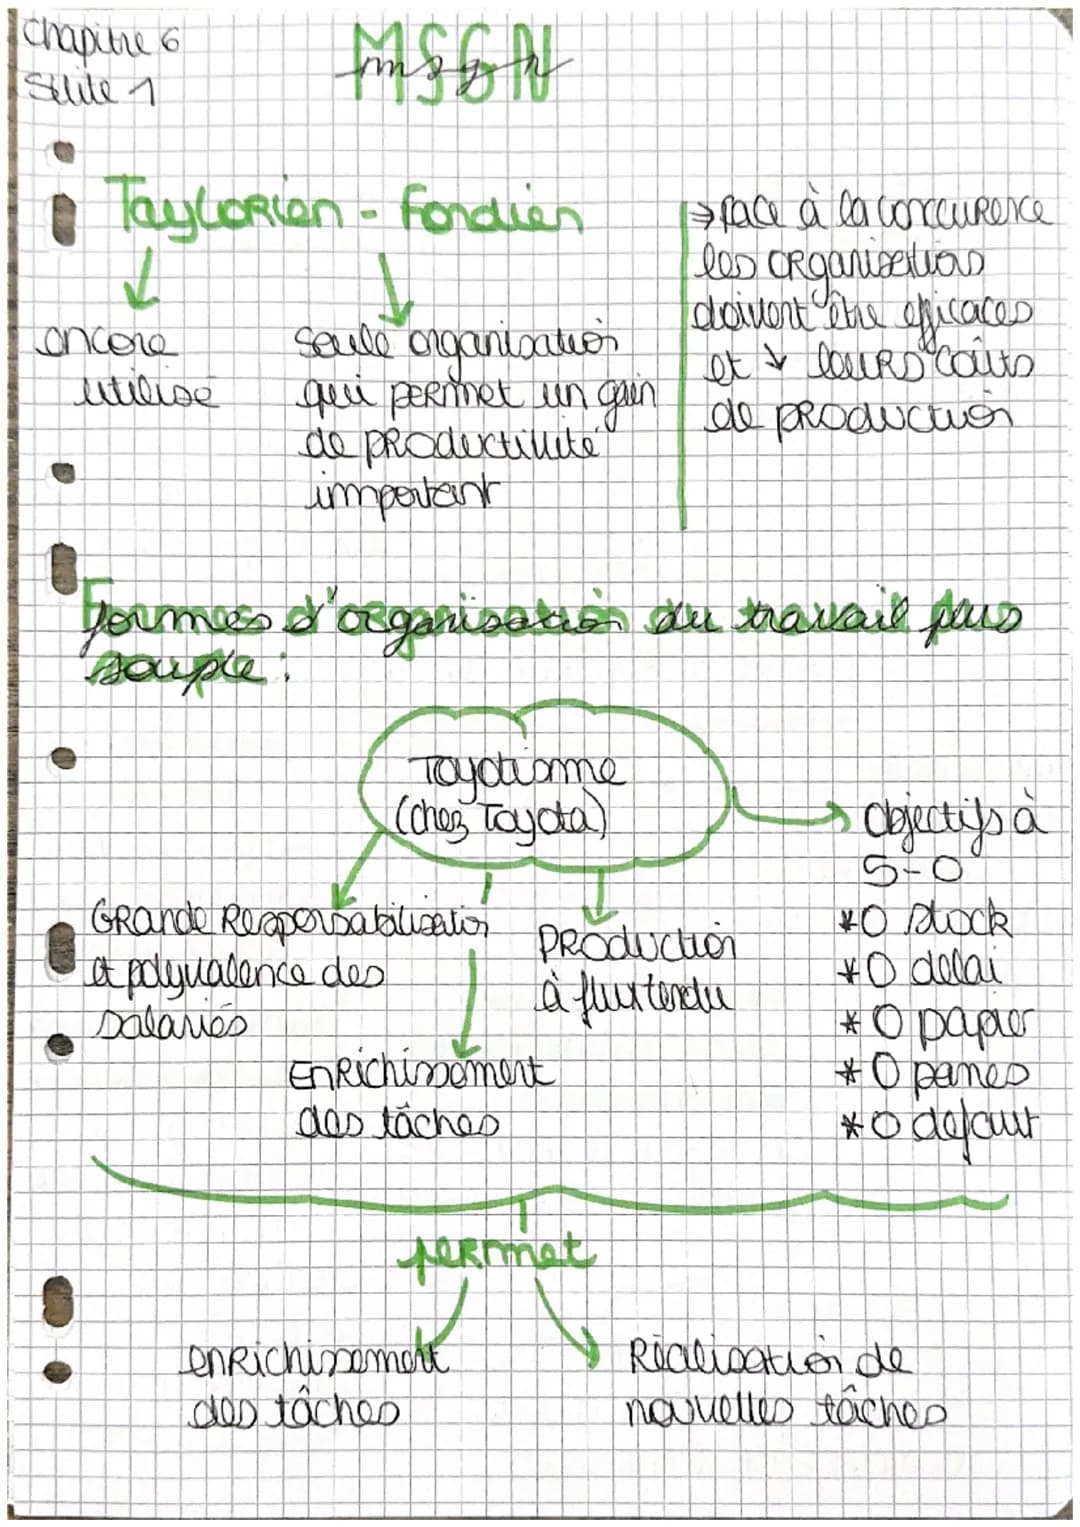 Chapitre 6
Suite 1
MSGN
msgn
Taylorien - Fordien
encore
utilisé
seule organisation
qui permet un gain
de productivité
important
⇒ face à la concurence
les organisations
doivent être efficaces
et ↘ leurs coûts
de production
Formes d'organisation du travail plus
souple :
Toyotisme
(chez Toyota)
Grande Responsabilisation
et polyvalence des
salariés
Enrichissement
des tâches
Production
à flux tendu
objectifs à
5-0
*0 stock
*0 delai
*0 papier
*0 panes
*0 defaut
permet
enrichissement
des tâches
Réalisation de
nouvelles tâches